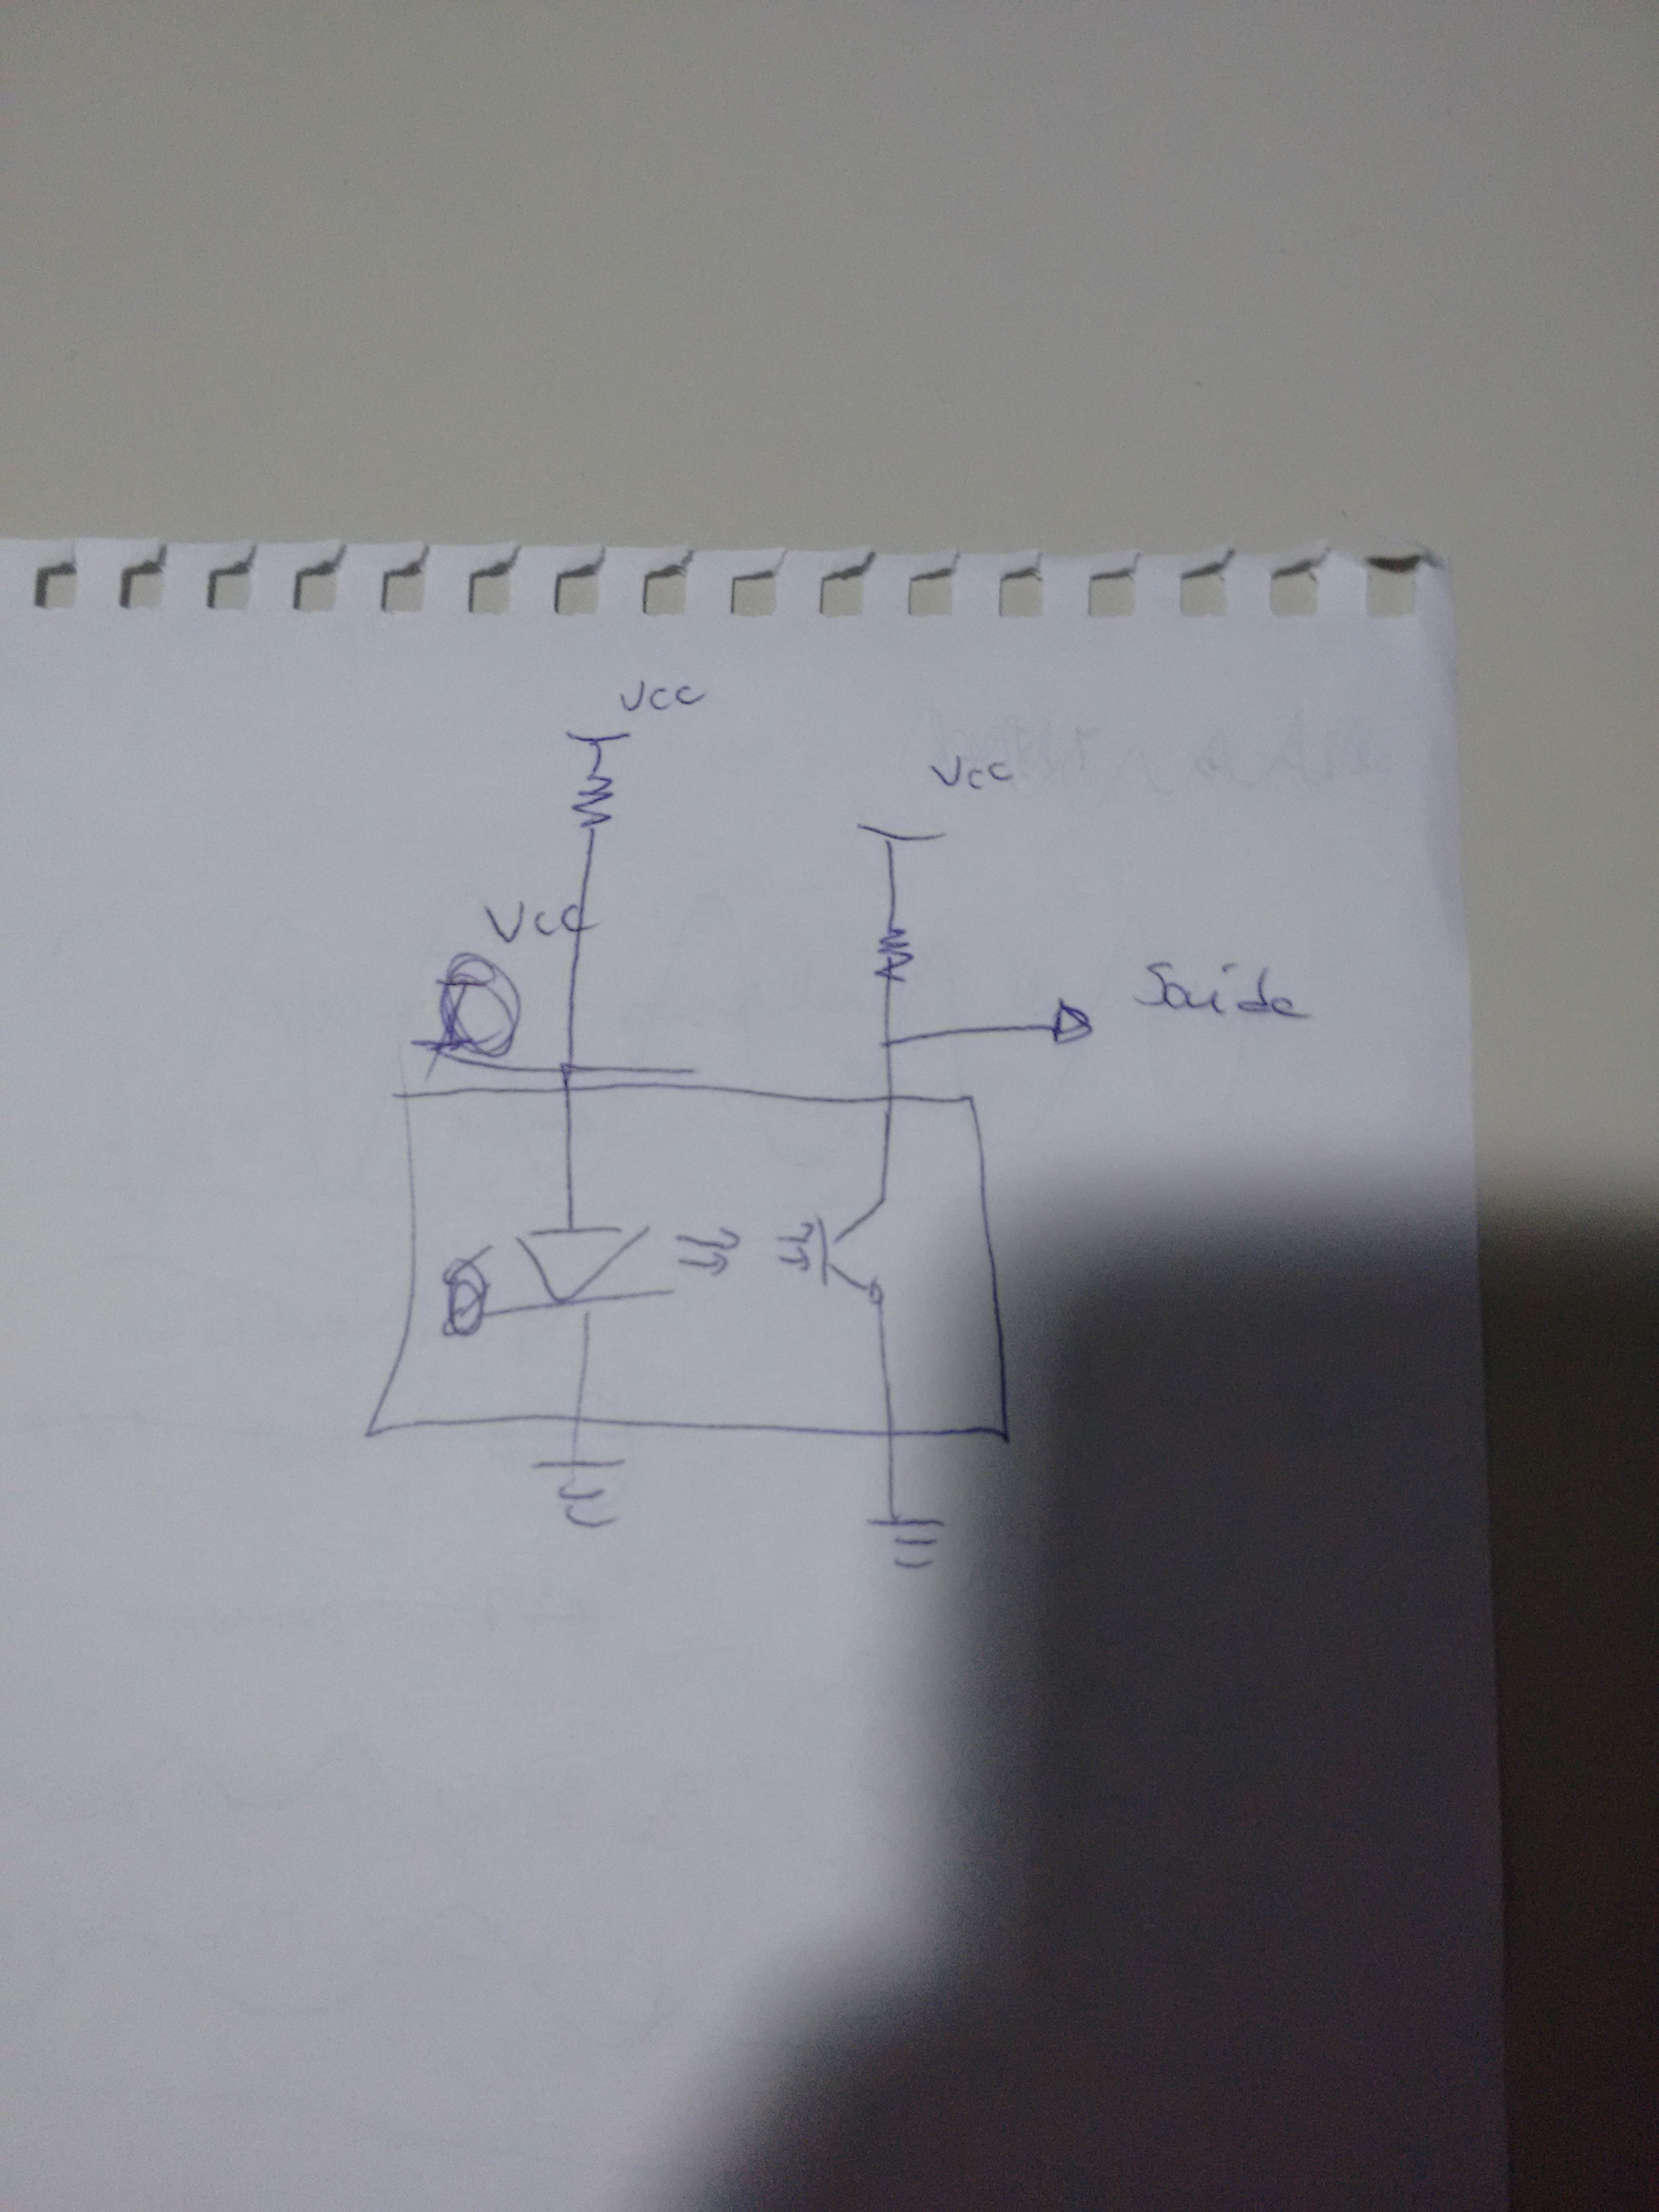 Vcc
Vcc
Vcc
Saida